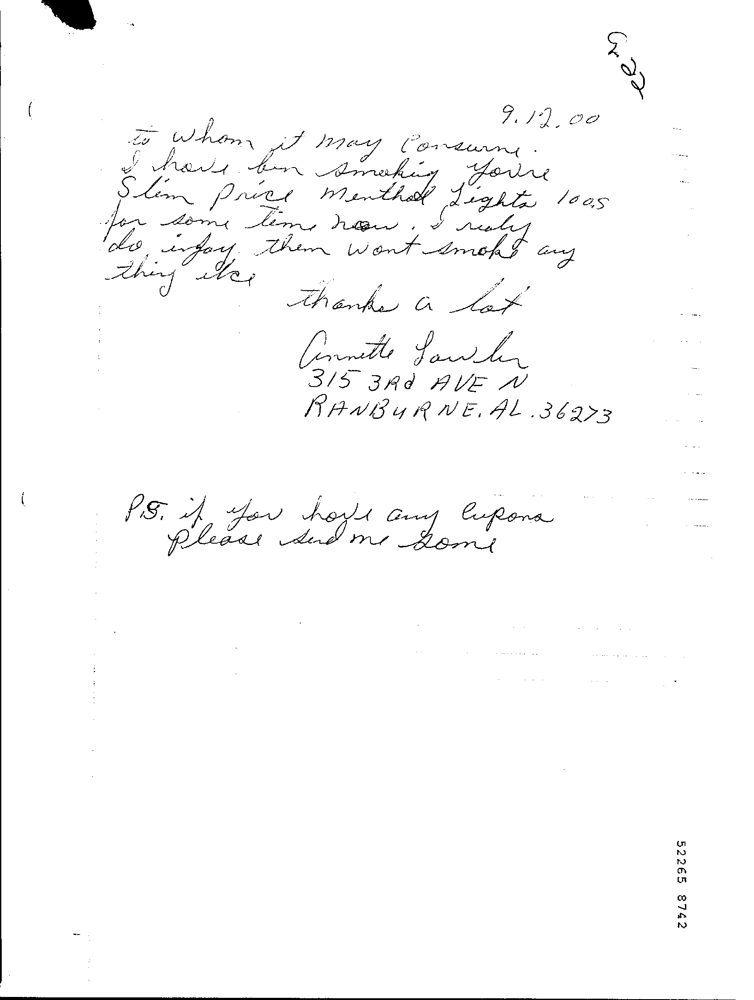 9.12.00
to whom it may Consurne.
I have ben smoking youre
Slim price menthol Lights 100s
for some time now. I realy
do injoy them wont smoke any
thing else
thanks a lot
Annette Lawler
315 3Rd AVE N
RANBURNE, AL. 36273
P.S. if you have any Cupons
please send me some
52265 8742